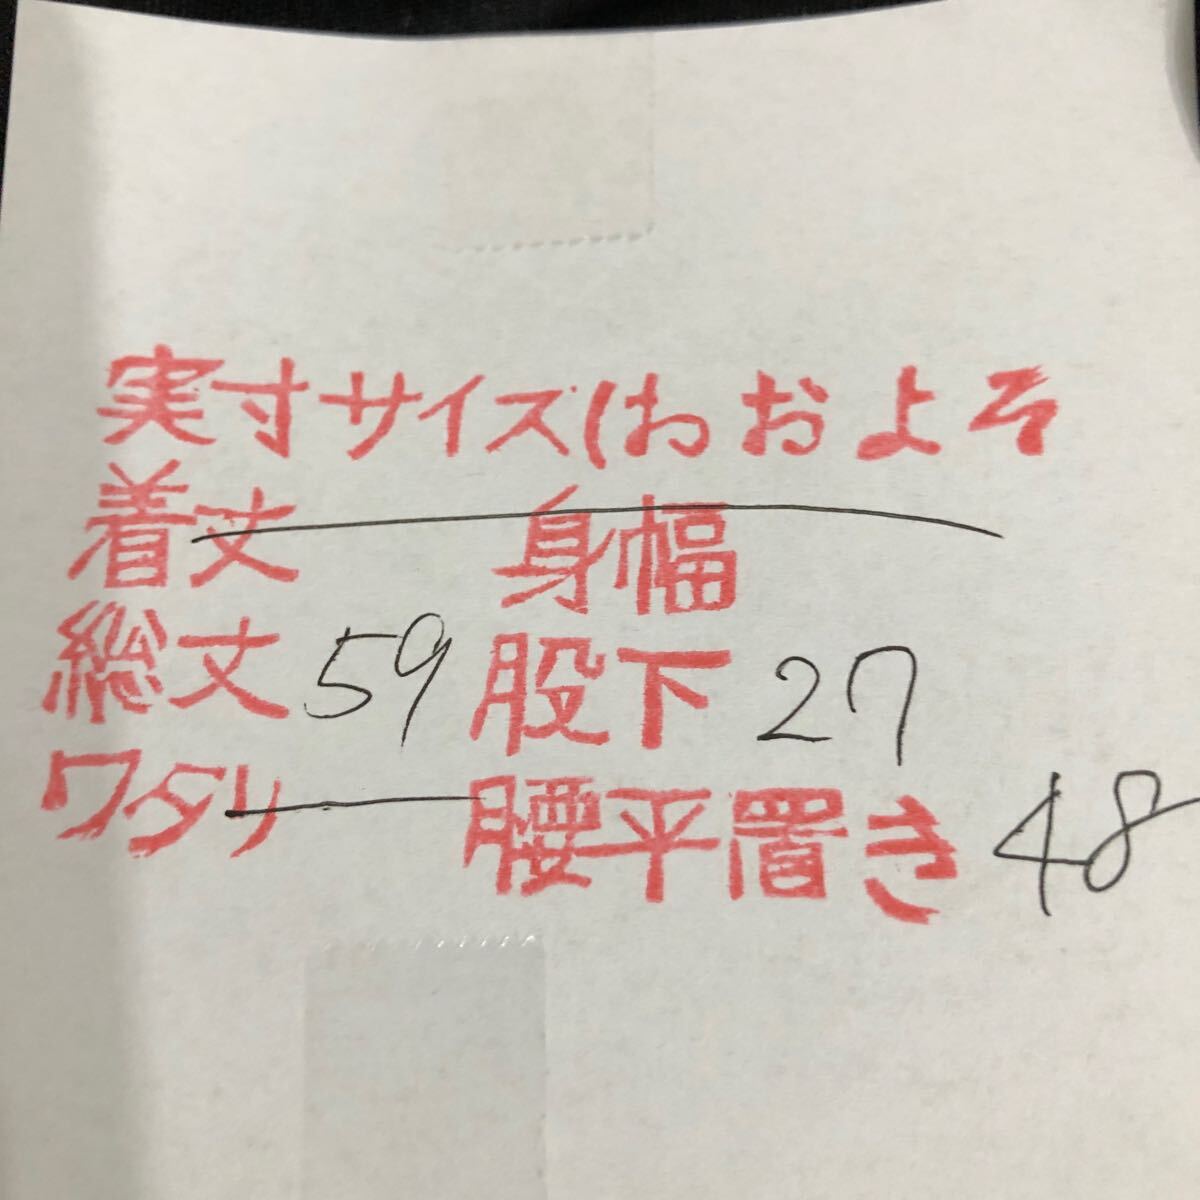 実寸サイズ(おおよそ
着丈 身幅
総丈 59 股下 27
ワタリ 腰平置き 48